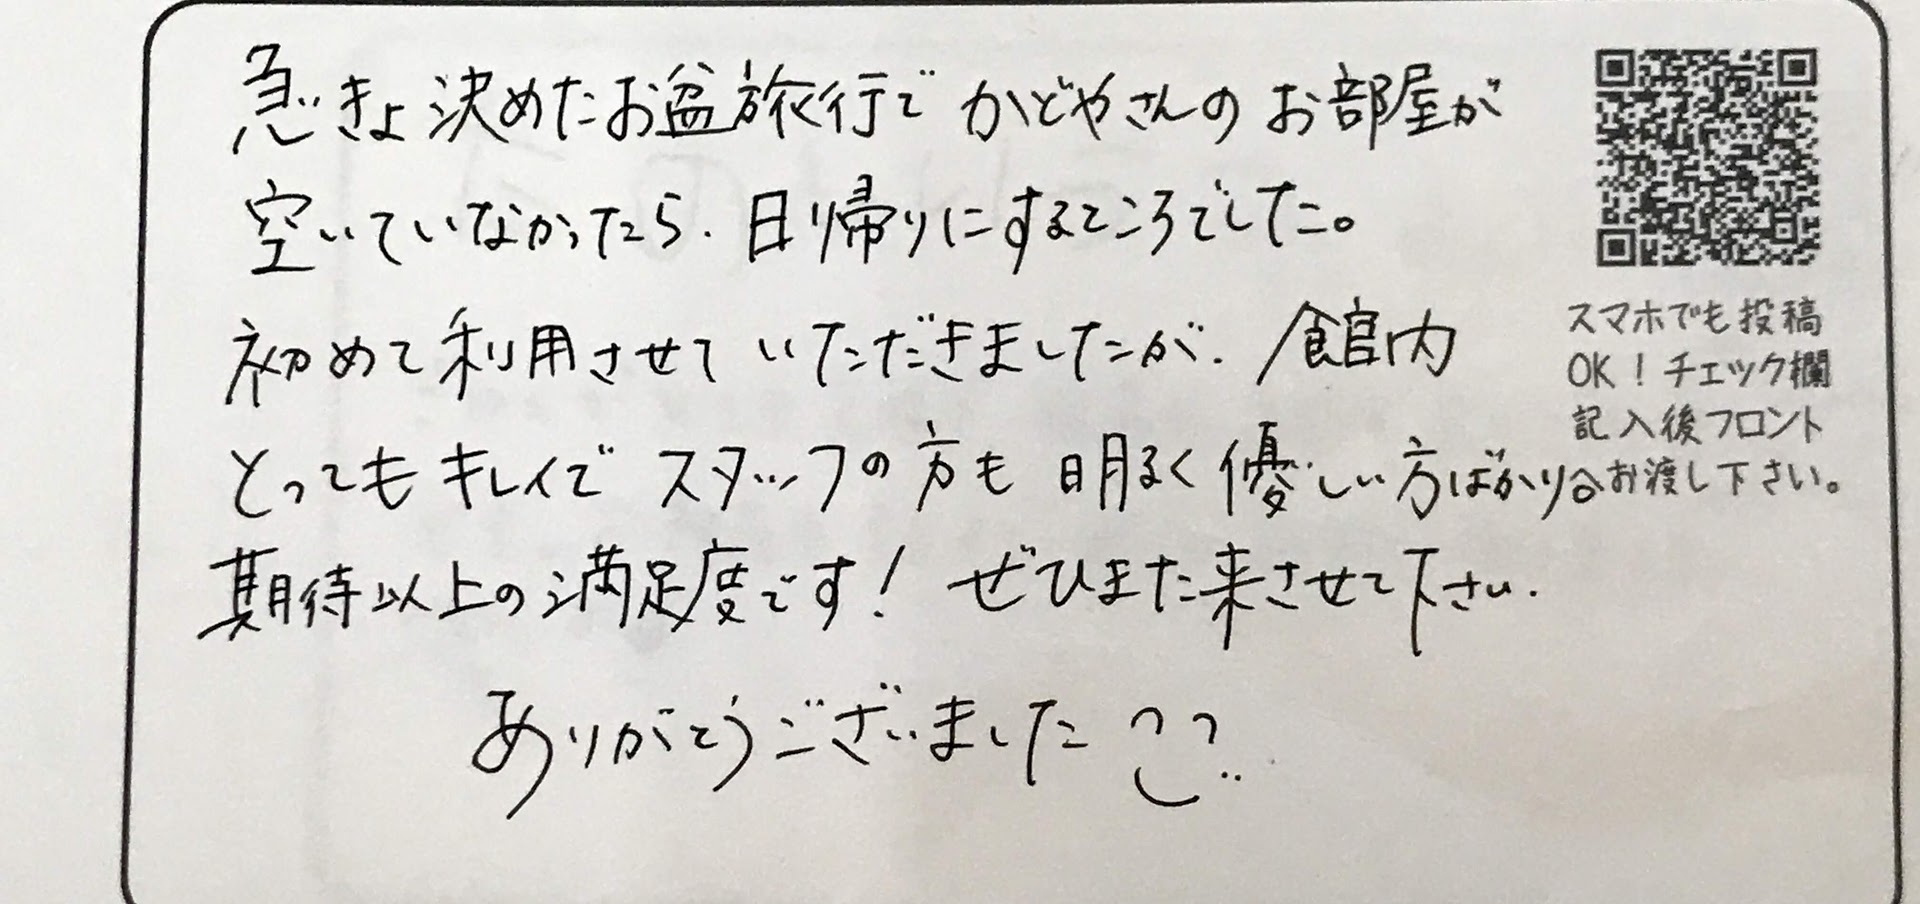 急きょ決めたお盆旅行でかどやさんのお部屋が
空いていなかったら、日帰りにするところでした。
初めて利用させていただきましたが、館内
とってもキレイで スタッフの方も 明るく優しい方ばかりで
期待以上の満足度です! ぜひまた来させて下さい.
ありがとうございました
スマホでも投稿
OK!チェック欄
記入後フロント
へお渡し下さい。